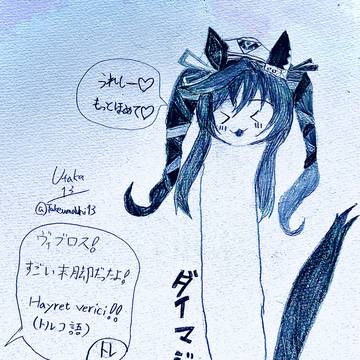 うれしー♡
もっとほめて♡
13
ヴィブロス!
すごい末脚だったよ!
Hayret verici!!
(トルコ語)
トレ
ダイマジ